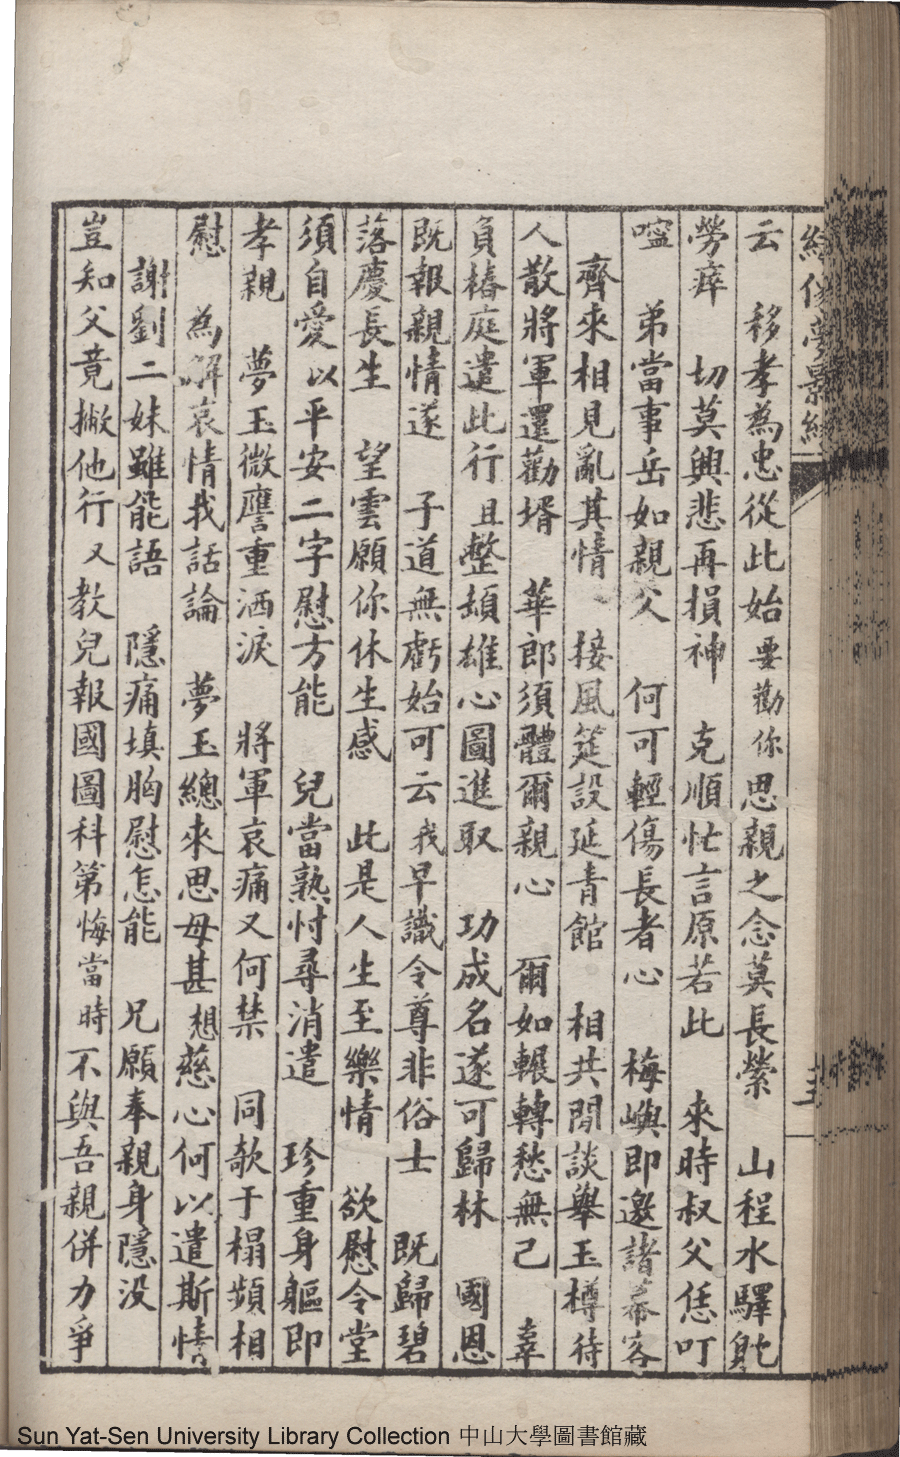 云　移孝為忠從此始要勸你思親之念莫長縈　山程水驛躭
勞瘁　切莫興悲再損神　克順忙言原若此　來時叔父恁叮
嚀　弟當事岳如親父　何可輕傷長者心　梅嶼即邀諸幕客
齊來相見亂其情　接風筵設延青館　相共閒談舉玉樽待
人散將軍還勸壻　華郎須體爾親心　爾如輾轉愁無已　辜
負椿庭遣此行且整頏雄心圖進取　功成名遂可歸林　國恩
既報親情遂　子道無虧始可云我早識令尊非俗士　既歸碧
落慶長生　望雲願你休生感　此是人生至樂情　欲慰令堂
須自愛以平安二字慰方能　兒當熟忖尋消遣　珍重身軀即
孝親　夢玉微譍重洒淚　將軍哀痛又何禁　同欹于榻頻相
慰　為解哀情我話論　夢玉總來思母甚想慈心何以遣斯情
謝劉二妹雖能語　隱痛填胸慰怎能　兄願奉親身隱没
豈知父竟撇他行又教兒報國圖科第悔當時不與吾親併力爭
Sun Yat-Sen University Library Collection 中山大學圖書館藏